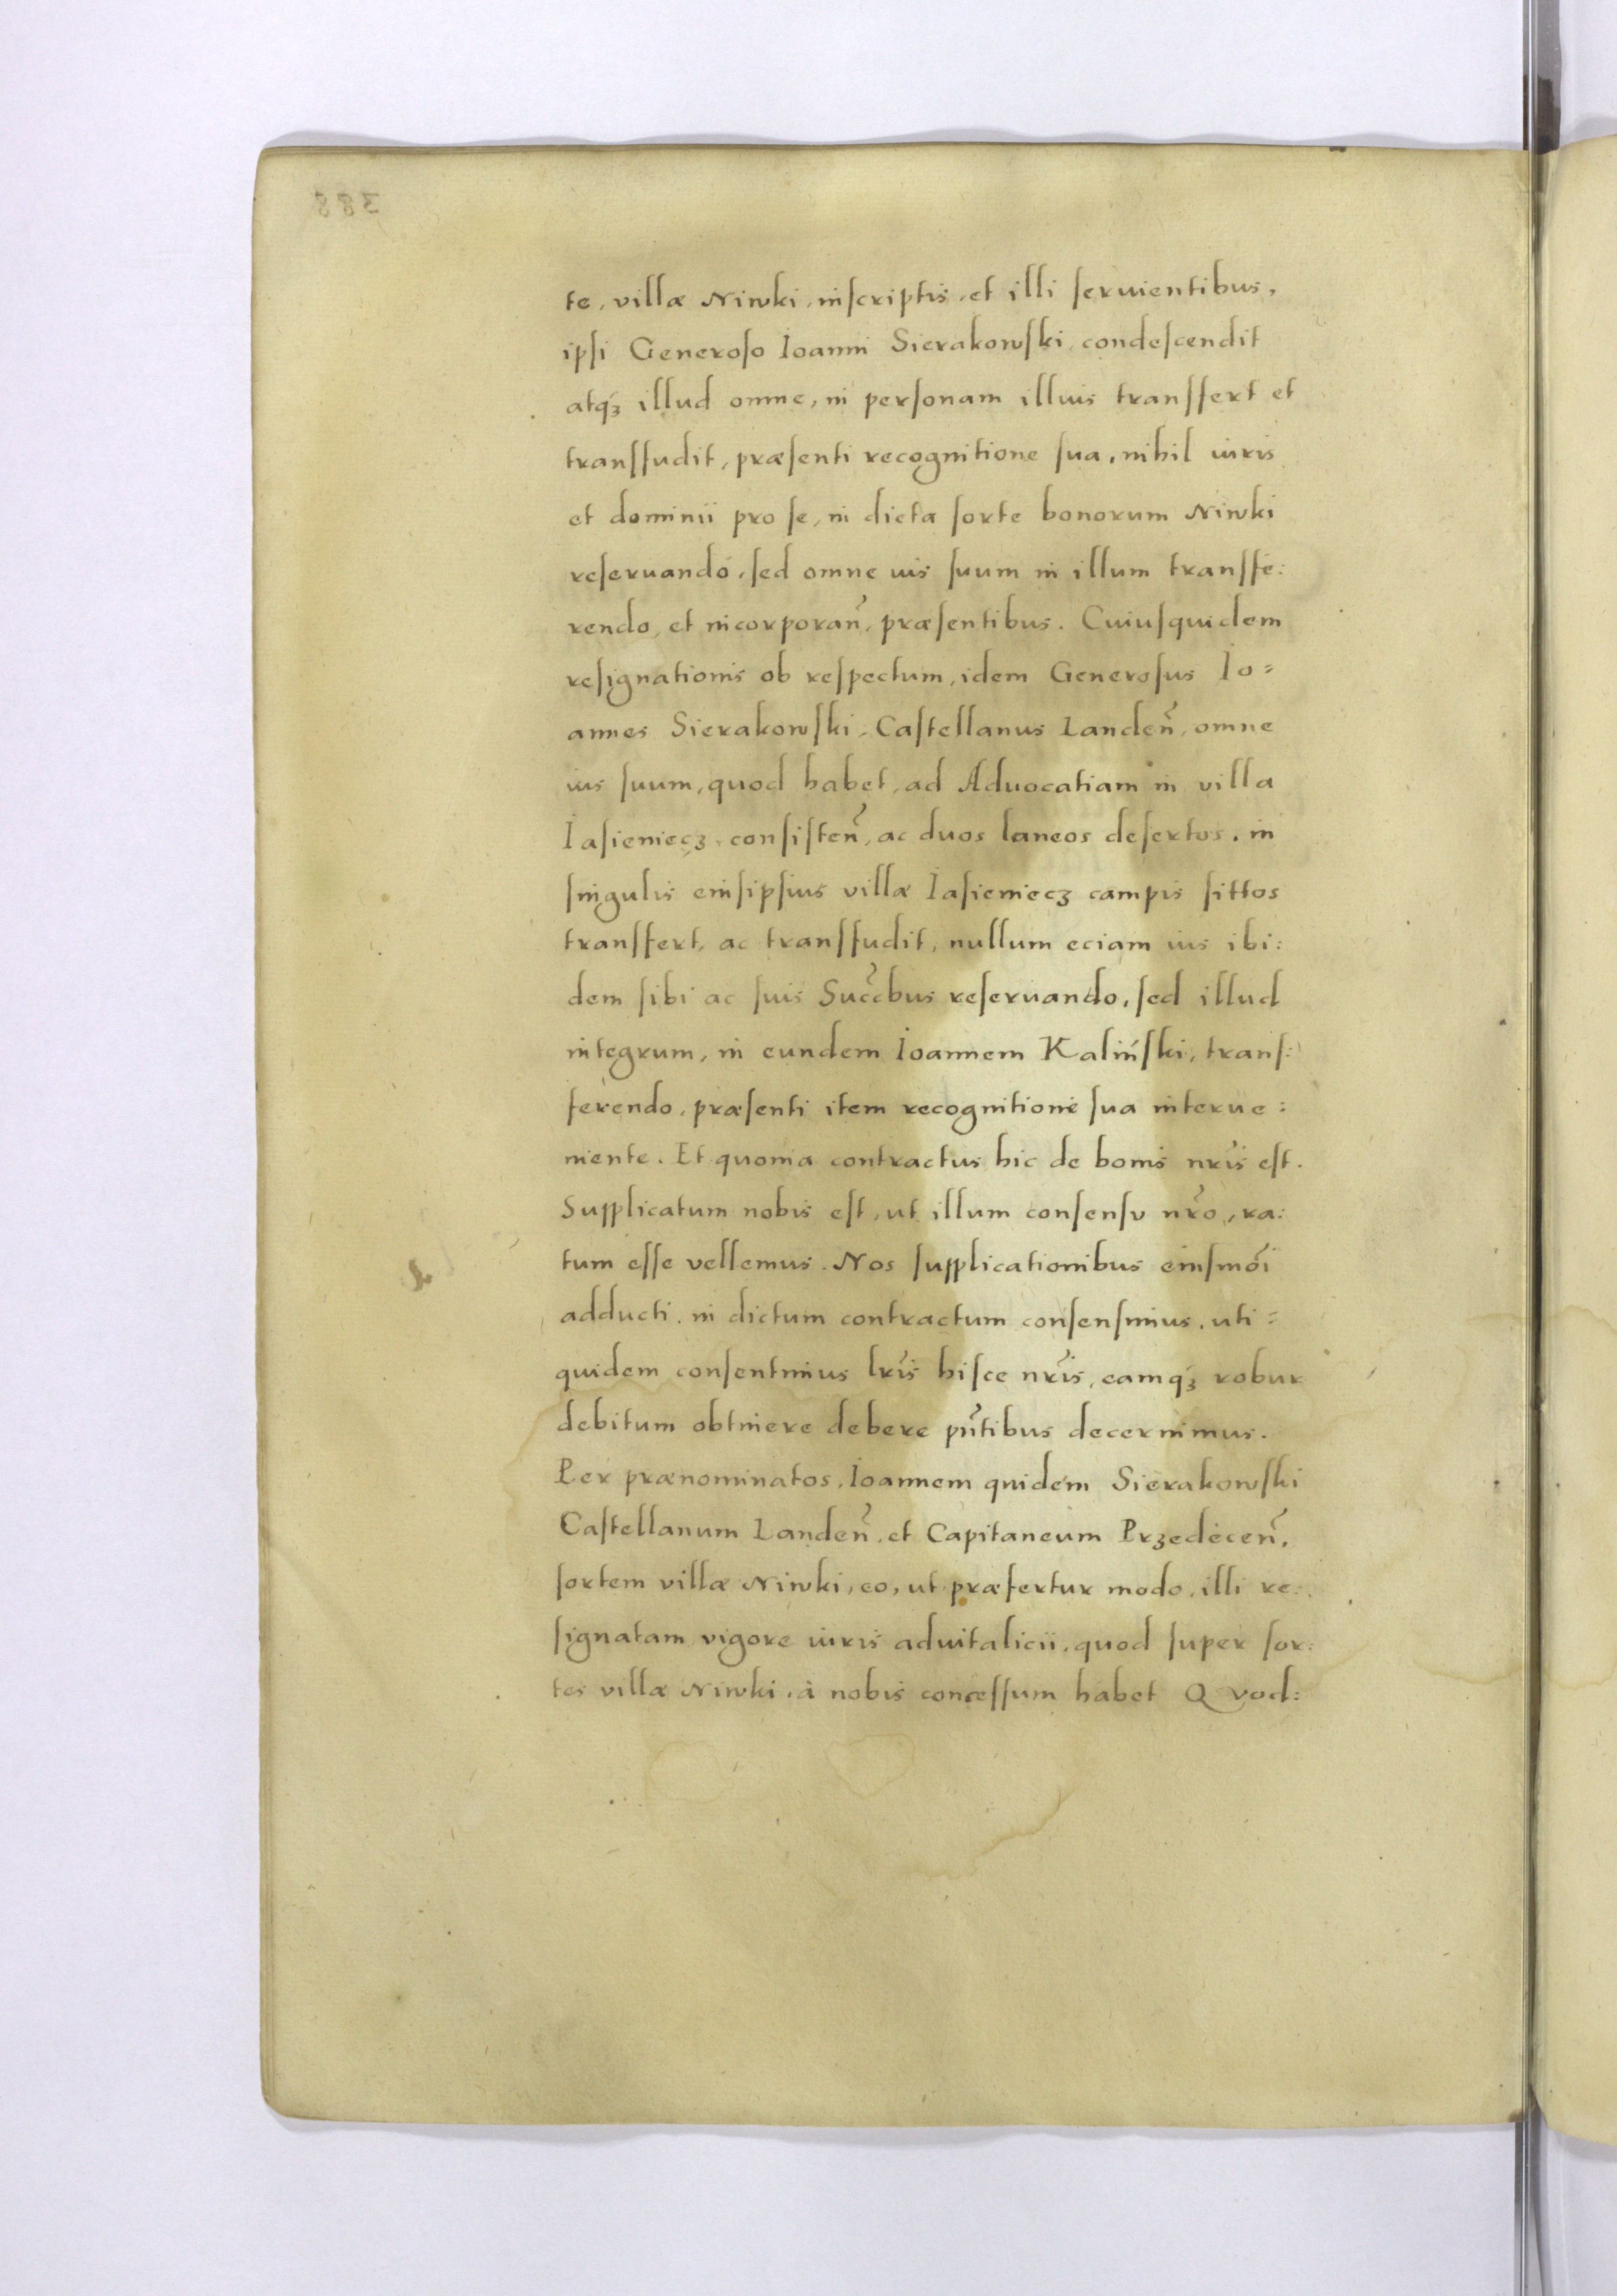 te, villæ Niwki, inscriptis, et illi seruientibus,
ipsi Generoso Ioanni Sierakowski, condescendit
atq́ꝫ illud omne, in personam illius transfert et
transfudit, præsenti recognitione sua, nihil iuris
et dominii pro se, in dicta sorte bonorum Niwki
reseruando, sed omne ius suum in illum transfe:
rendo, et incorporan̄, præsentibus. Cuiusquidem
resignationis ob respectum, idem Generosus Io=
annes Sierakowski, Castellanus Landen̄, omne
ius suum, quod habet, ad Aduocatiam in villa
Iasieniecz, consisten̄, ac duos laneos desertos, in
singulis eiusipsius villæ Iasieniecz campis sittos
transfert, ac transfudit, nullum eciam ius ibi:
dem sibi ac suis Succ̄bus reseruando, sed illud
integrum, in eundem Ioannem Kaliński, trans:
ferendo, præsenti item recognitione sua interue:
niente. Et quonia contractus hic de bonis nr̄is est.
Supplicatum nobis est, ut illum consensu nr̄o, ra:
tum esse vellemus. Nos supplicationibus eiusmōi
adducti, in dictum contractum consensimus, uti=
quidem consentimus lr̄is hisce nr̄is, eamq́ꝫ robur
debitum obtinere debere pn̄tibus decernimus.
Per prænominatos, Ioannem quidem Sierakowski
Castellanum Landen̄, et Capitaneum Przedecen̄,
sortem villæ Niwki, eo, ut præfertur modo, illi re:
signatam vigore iuris aduitalicii, quod super sor:
tes villæ Niwki, à nobis concessum habet Quod: